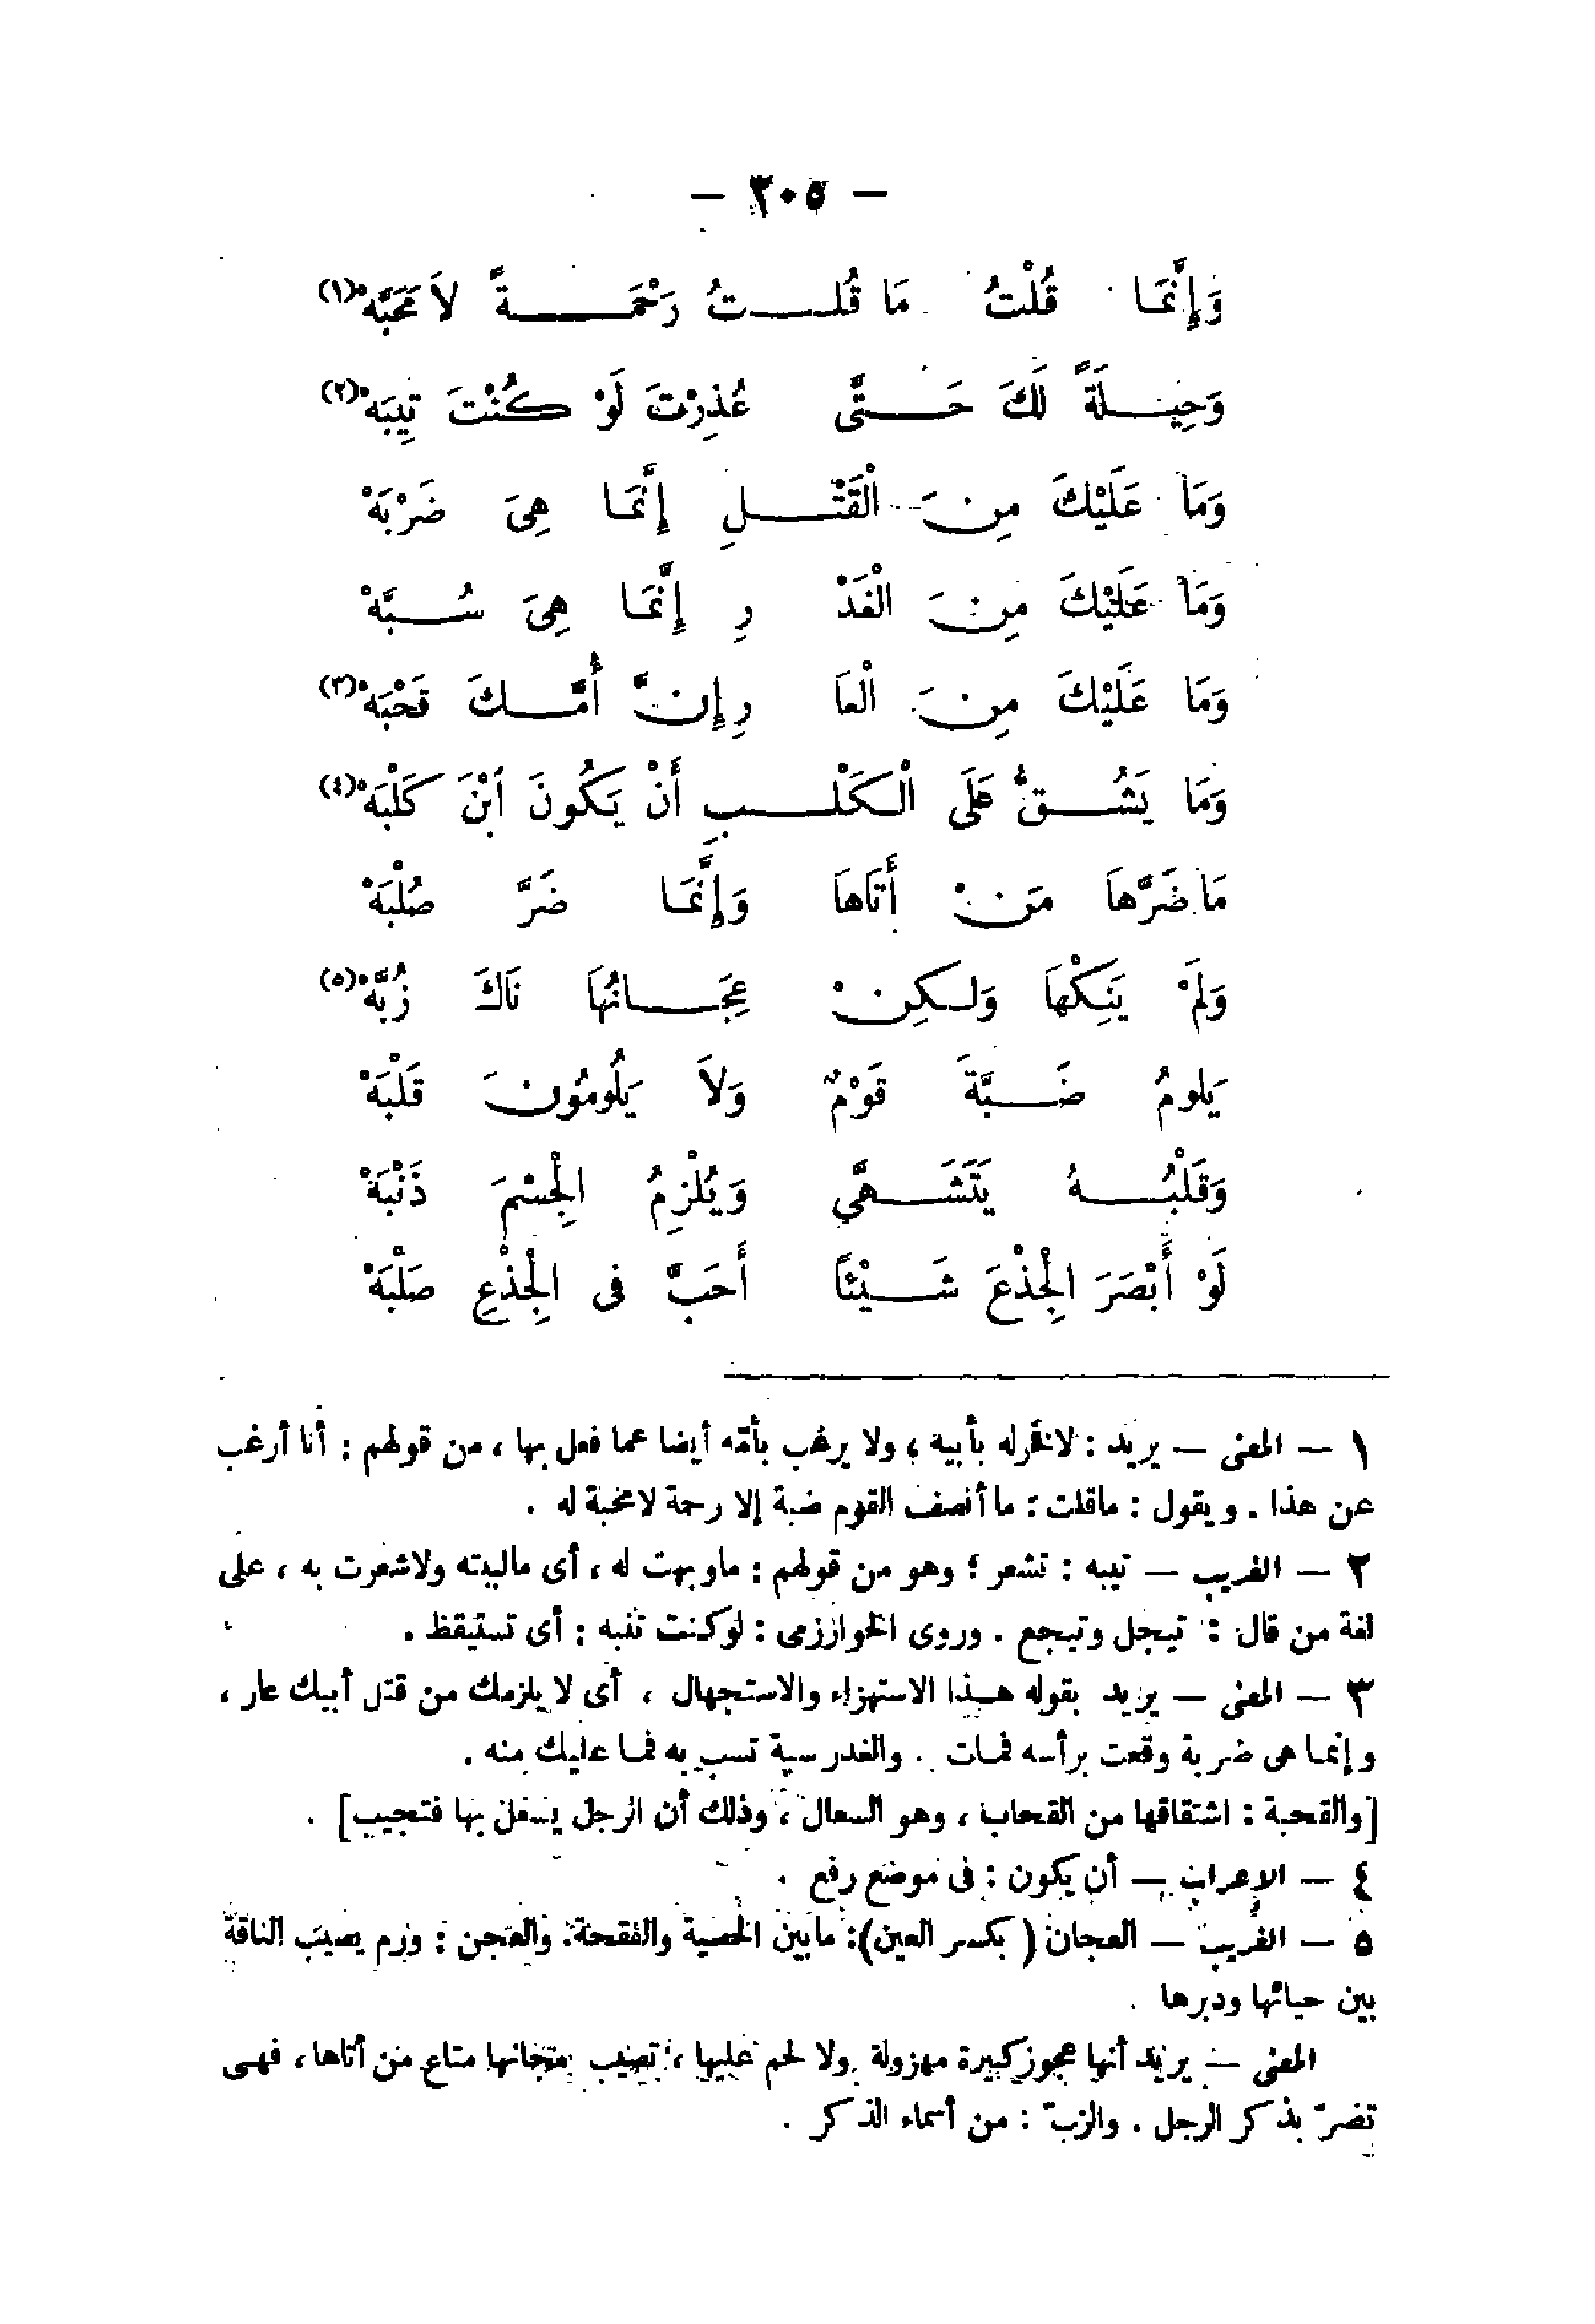 — ٣٠٥ —
وَإِنَّمَا قُلْتُ مَا قُلْتُ رَحْمَةً لاَ مَحَبَّهْ(١)
وَحِيلَةً لَكَ حَتَّى عُذِرْتَ لَوْ كُنْتَ تِيبَهْ(٢)
وَمَا عَلَيْكَ مِنَ الْقَتْلِ إِنَّمَا هِىَ ضَرْبَهْ
وَمَا عَلَيْكَ مِنَ الْغَدْ رِ إِنَّمَا هِىَ سُبَّهْ
وَمَا عَلَيْكَ مِنَ الْعَا رِ إِنَّ أُمَّكَ قَحْبَهْ(٣)
وَمَا يَشُقُّ عَلَى الْكَلْبِ أَنْ يَكُونَ ابْنَ كَلْبَهْ(٤)
مَا ضَرَّهَا مَنْ أَتَاهَا وَإِنَّمَا ضَرَّ صُلْبَهْ
وَلَمْ يَنِكْهَا وَلكِنْ عِجَانُهَا نَاكَ زُبَّهْ(٥)
يَلومُ ضَبَّةَ قَوْمٌ وَلاَ يَلُومُونَ قَلْبَهْ
وَقَلْبُهُ يَتَشَهَّى وَيُلْزِمُ الْجِسْمَ ذَنْبَهْ
لَوْ أَبْصَرَ الْجِذْعَ شَيْئًا أَحَبَّ فى الْجِذْعِ صَلْبَهْ
١ — المعنى — يريد : لا نخر له بأبيه ، ولا يرغب بأمّه أيضا عما فعل بها ، من قولهم : أنا أرغب
عن هذا . ويقول : ماقلت : ما أنصف القوم ضبة إلا رحمة لا محبة له .
٢ — الغريب — تيبه : تشعر ؛ وهو من قولهم : ماوبهت له ، أى ماليدته ولاشعرت به ، على
لغة من قال : تيجل وتيجع . وروى الخوارزمى : لوكنت تنبه : أى تستيقظ .
٣ — المعنى — يريد بقوله هذا الاستهزاء والاستجهال ، أى لا يلزمك من قتل أبيك عار ،
وإنما هى ضربة وقعت برأسه فمات . والغدر سبة تسب به فما عليك منه .
[والقحبة : اشتقاقها من القحاب ، وهو السعال ، وذلك أن الرجل يسعل بها فتجيب] .
٤ — الإعراب — أن يكون : فى موضع رفع .
٥ — الغريب — العجان ( بكسر العين) : مابين الخصية والفقحة . والعجن : ورم يصيب الناقة
بين حيائها ودبرها .
المعنى — يريد أنها عجوز كبيرة مهزولة ولا لحم عليها ، تصيب بعجانها متاع من أتاها ، فهى
تضرّ بذكر الرجل . والزبّ : من أسماء الذكر .